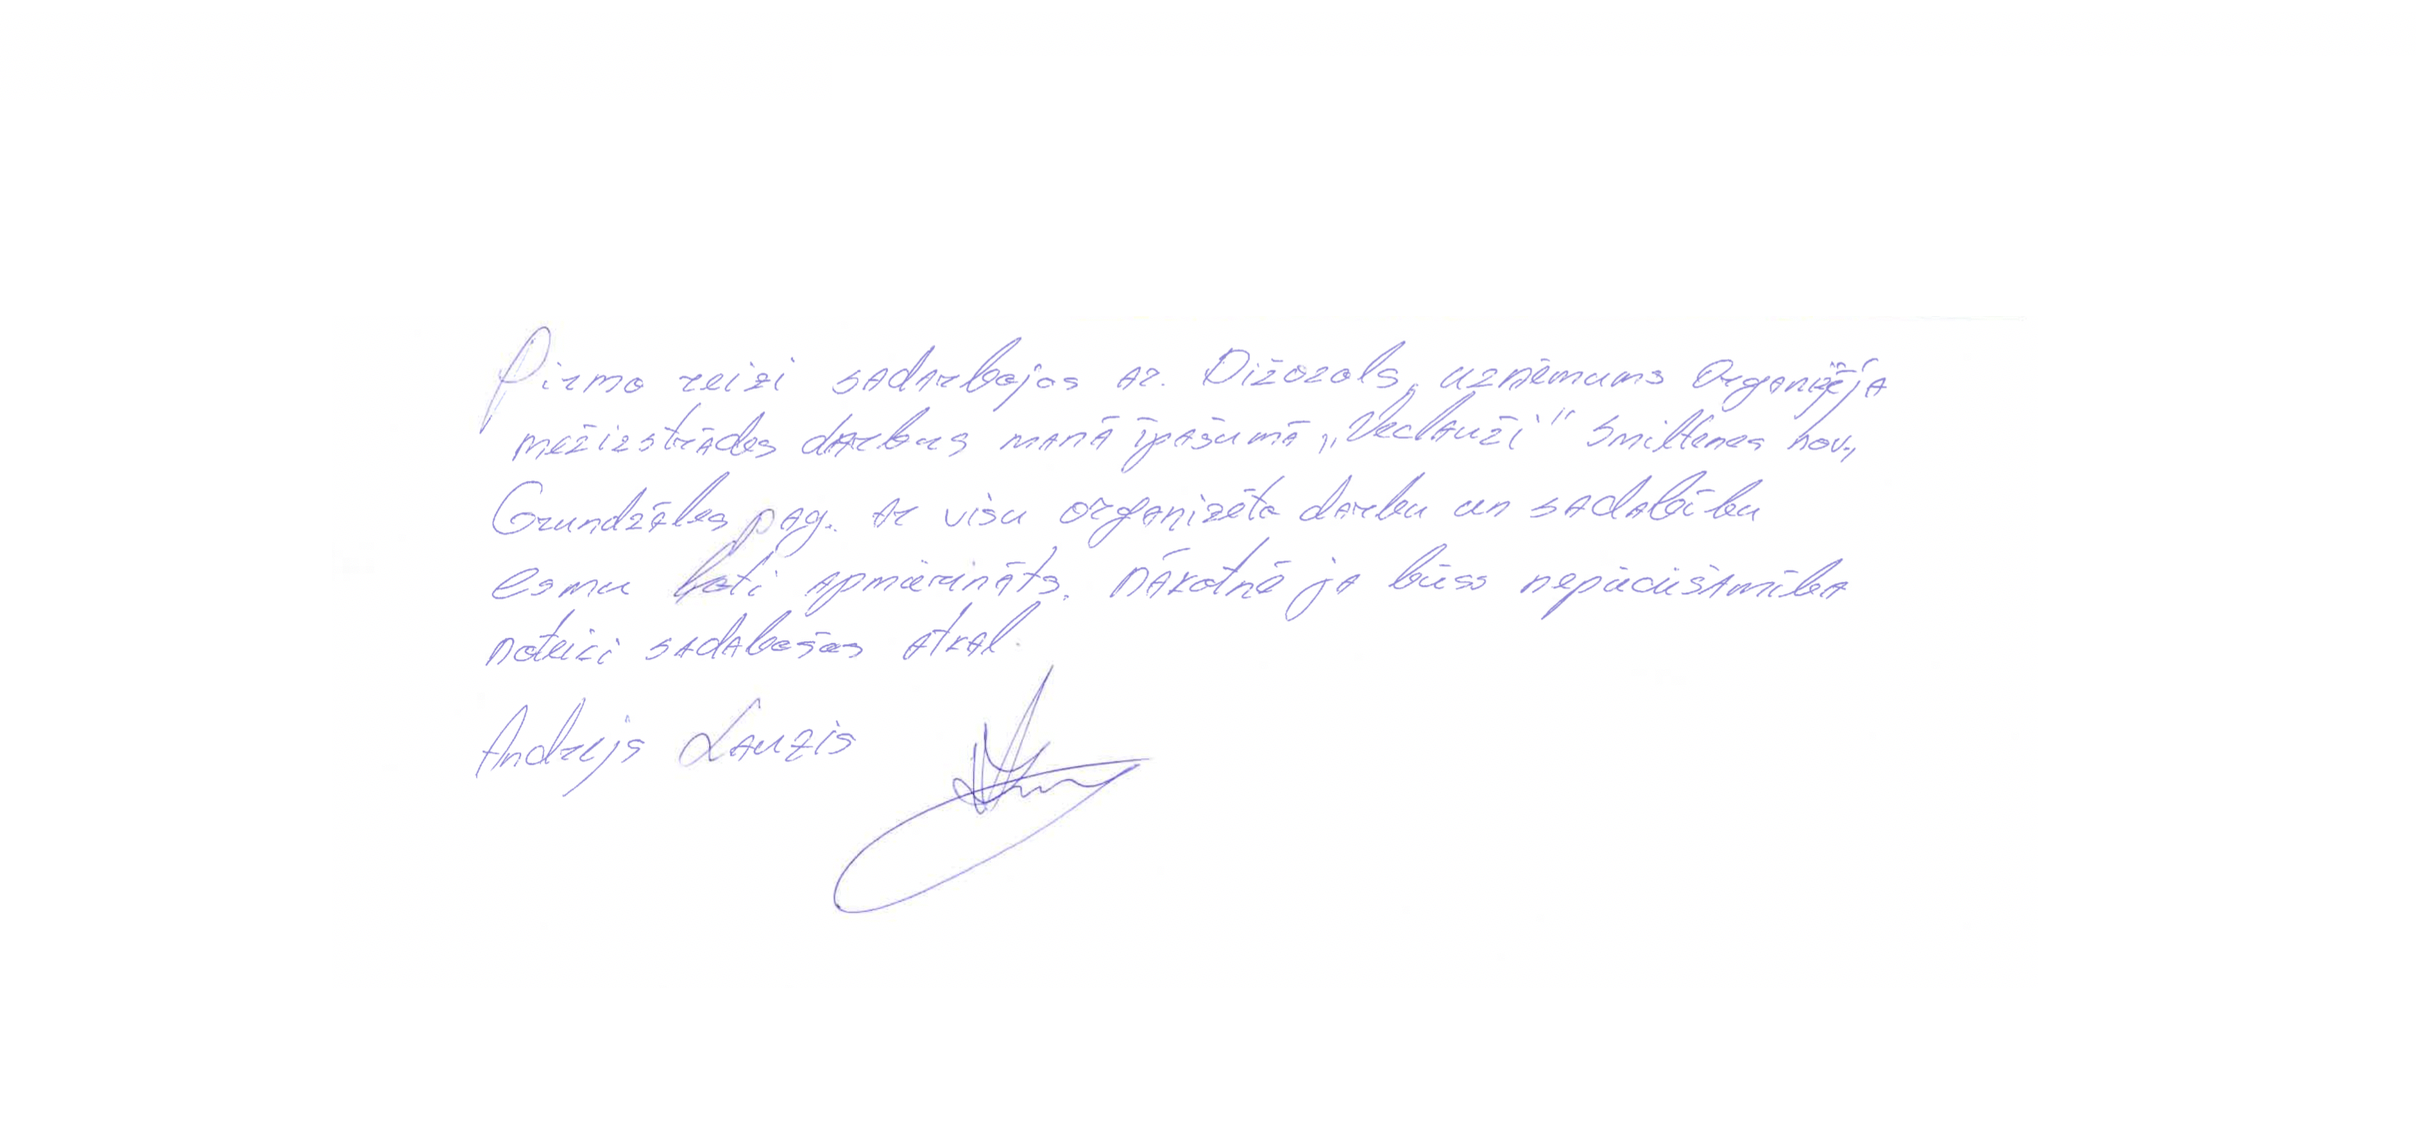 Pirmo reizi sadarbojos ar. Dižozols, uzņēmums Organizēja
mežizstrādes darbus manā īpašumā „Veclauži" Smiltenes nov.,
Grundzāles pag. Ar visu organizēto darbu un sadabību
esmu ļoti apmierināts. Nākotnē ja būss nepiecišamība
noteici sadabošos atkal.
Andrejs Lauzis